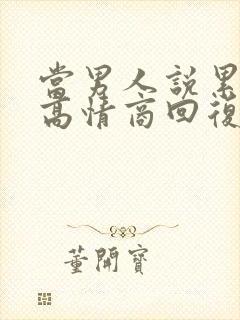 當男人說累
高情商回復
董開寶